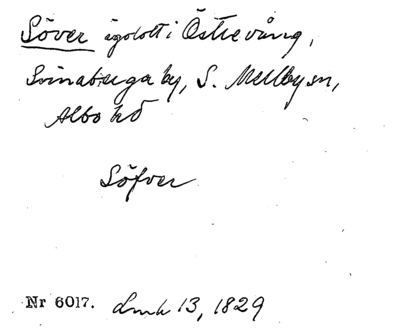 Söver ägolott i Östrevång,
Svinaberga by, S. Mellby sn,
Albo hd
Söfver
Nr 6017. Lmh 13, 1829